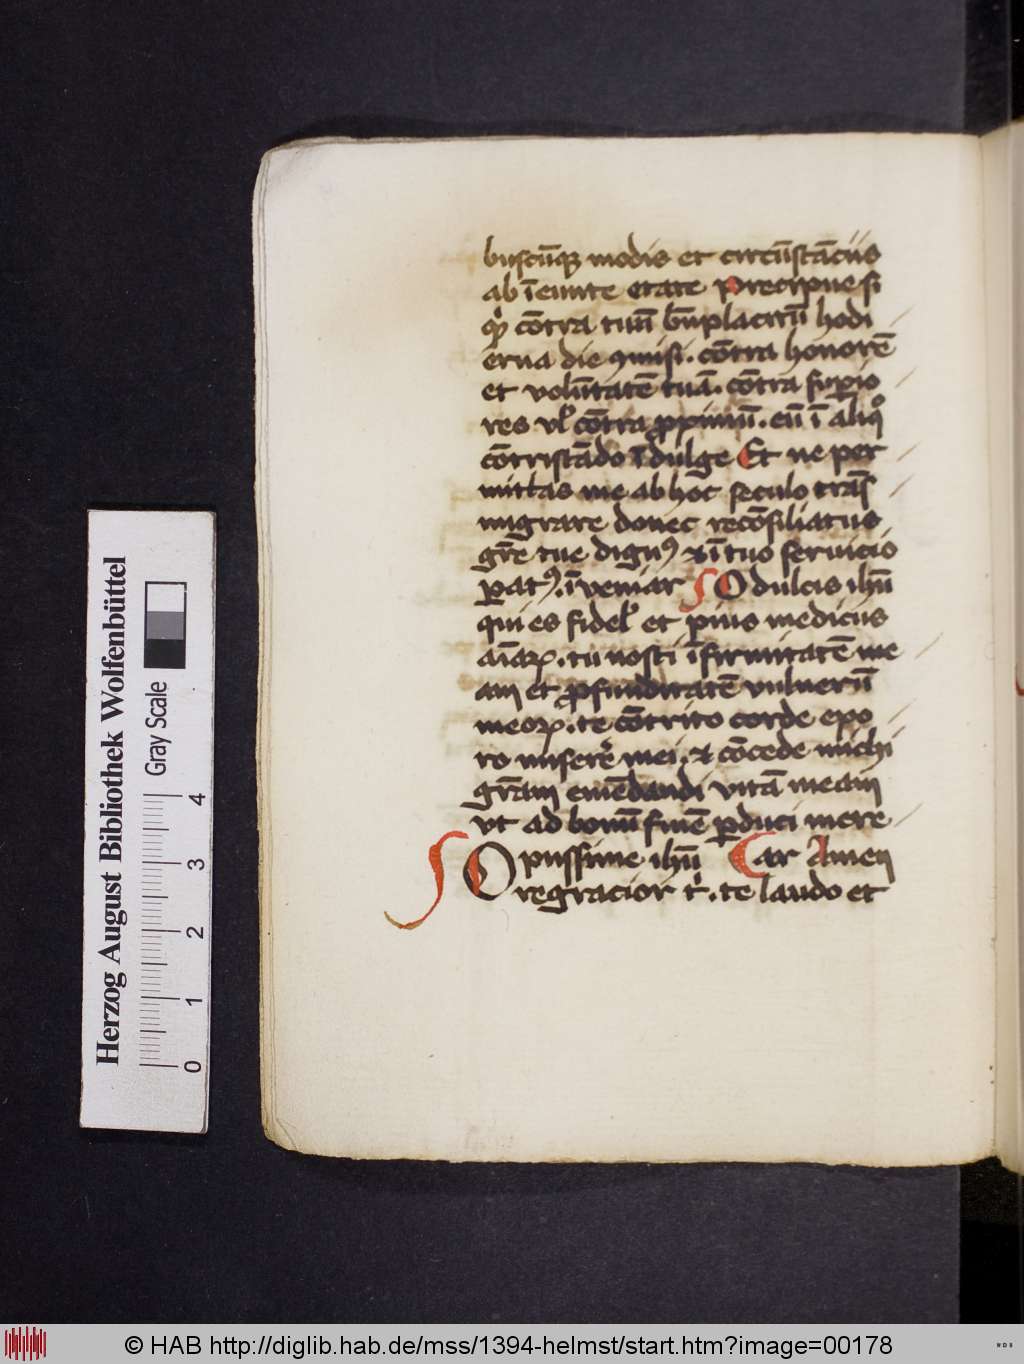 buscūq₃ modis et circūstācijs
ab ieunte etate Precipue si
qͥ cōtra tuū bn̄placitū hodi
erna die ꝯmisi . cōtra honorē
et volūtatē tuā . cōtra supio
res vl' cōtra ꝓximū . eū ī aliqᵒ
cōtristādo īdulge Et ne per
mittas me ab hoc seculo trās
migrare donec recōsiliatus
gr̄e tue dignꝰ ⁊ ī tuo seruicio
ꝑatꝰ . īveniar O dulcis ihū
qui es fidel' et pius medicus
aīaꝝ . tu nosti īfirmitatē me
am et ꝓfunditatē vulnerū
meoꝝ . te cōtrito corde expo
ro miserē mei . ⁊ cōcede michi
gr̄am emēdandi vitā meam
vt ad bonū finē ꝑduci mere
O pijssime ihū Car Amen
regracior tͥ . te laudo et
Herzog August Bibliothek Wolfenbüttel
Gray Scale
0 1 2 3 4
© HAB http://diglib.hab.de/mss/1394-helmst/start.htm?image=00178